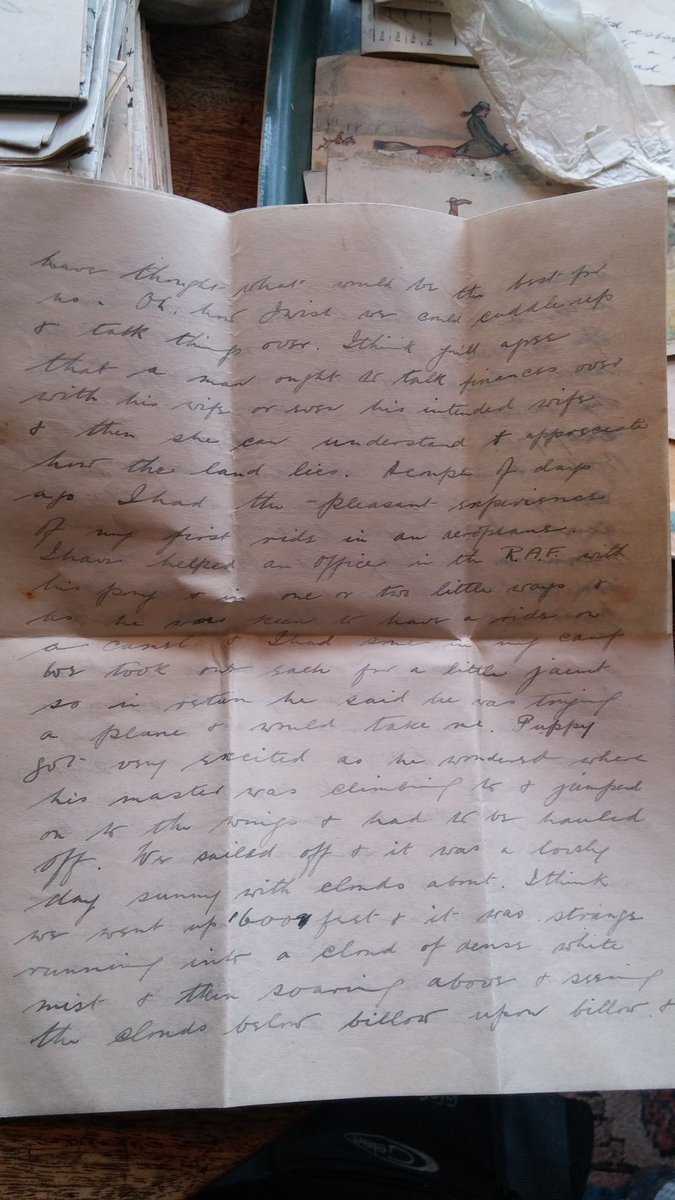 have thought what would be the best for
us. Oh, how I wish we could cuddle up
& talk things over. I think you'll agree
that a man ought to talk finances over
with his wife or even his intended wife
& then she can understand & appreciate
how the land lies. A couple of days
ago I had the pleasant experience
of my first ride in an aeroplane.
I have helped an officer in the R.A.F. with
his pony & in one or two little ways &
as he was keen to have a ride on
a camel & I had some in my camp
we took out each for a little jaunt
so in return he said he was trying
a plane & would take me. Puppy
got very excited as he wondered where
his master was climbing to & jumped
on to the wings & had to be hauled
off. We sailed off & it was a lovely
day sunny with clouds about. I think
we went up 6000 feet & it was strange
running into a cloud of dense white
mist & then soaring above & seeing
the clouds below billow upon billow &